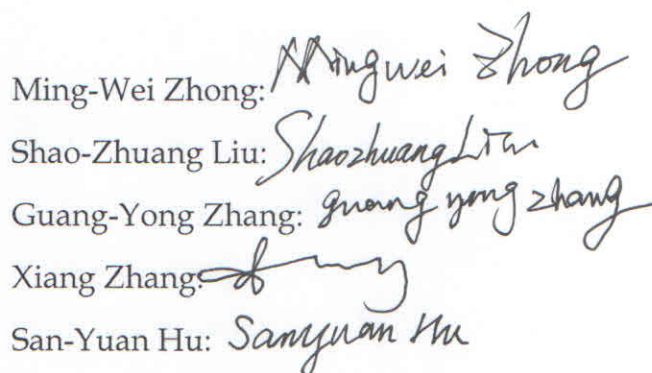 Ming-Wei Zhong: Mingwei Zhong
Shao-Zhuang Liu: Shaozhuang Liu
Guang-Yong Zhang: guang yong zhang
Xiang Zhang:
San-Yuan Hu: Sanyuan Hu